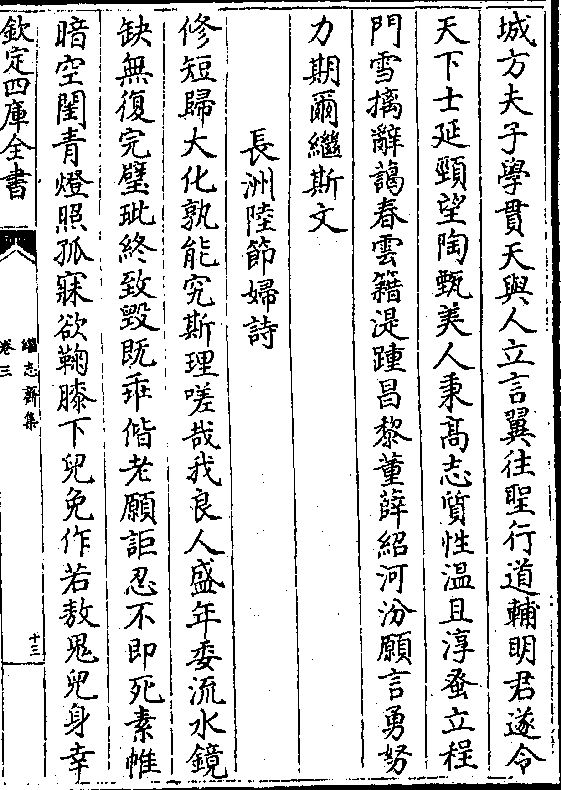 城方夫子學貫天與人立言翼往聖行道輔明君遂令
天下士延頸望陶甄美人秉髙志質性温且淳蚤立程
門雪摛辭藹春雲籍湜踵昌黎董薛紹河汾願言勇努
力期爾繼斯文
長洲陸節婦詩
修短歸大化孰能究斯理嗟哉我良人盛年委流水鏡
缺無復完璧玼終致毀既乖偕老願詎忍不即死素帷
暗空閨青燈照孤寐欲鞠膝下兒免作若敖鬼兒身幸
欽定四庫全書
繼志齋集
卷三
十三